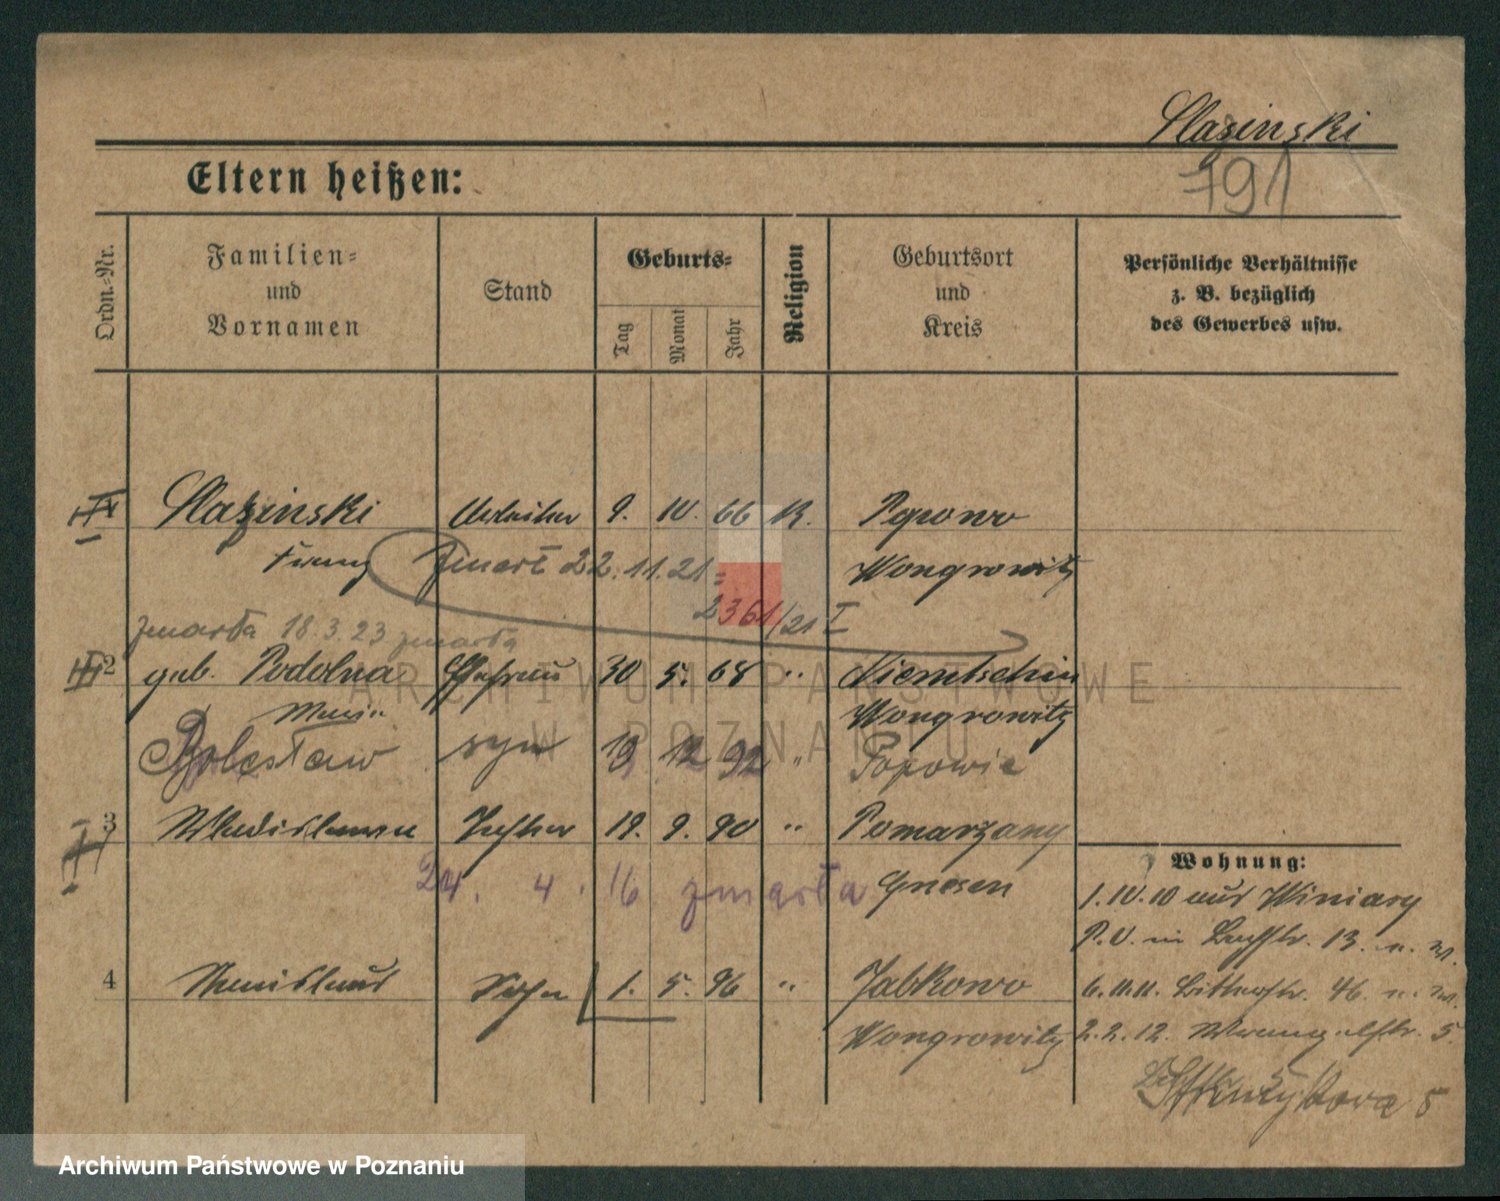 Slazinski
791
Eltern heißen:
Ordn.-Nr.
Familien-
und
Vornamen
Stand
Geburts-
Tag
Monat
Jahr
Religion
Geburtsort
und
Kreis
Persönliche Verhältnisse
z. B. bezüglich
des Gewerbes usw.
Slazinski Arbeiter 9. 10. 66 K. Popowo
Franz zmarł 22.11.21 = Wongrowitz
2361/21 I
zmarła 18.3.23 zmarła
2 geb. Podolna Ehefrau 30 5. 68 " Niemtschin
Maria Wongrowitz
Bolesław syn 19 12 92 " Popowie
3 Wladislawa Tochter 19. 9. 90 " Pomarzany
24. 4. 16 zmarła Gnesen
Wohnung:
1.10.10 aus Winiary
P.V. in 13.
4 Stanislaus Sohn 1. 5. 96 " Jabkowo
6.11.11. 46
Wongrowitz
2.2.12. Wrangelstr. 5.
5
ARCHIWUM PAŃSTWOWE
W POZNANIU
Archiwum Państwowe w Poznaniu